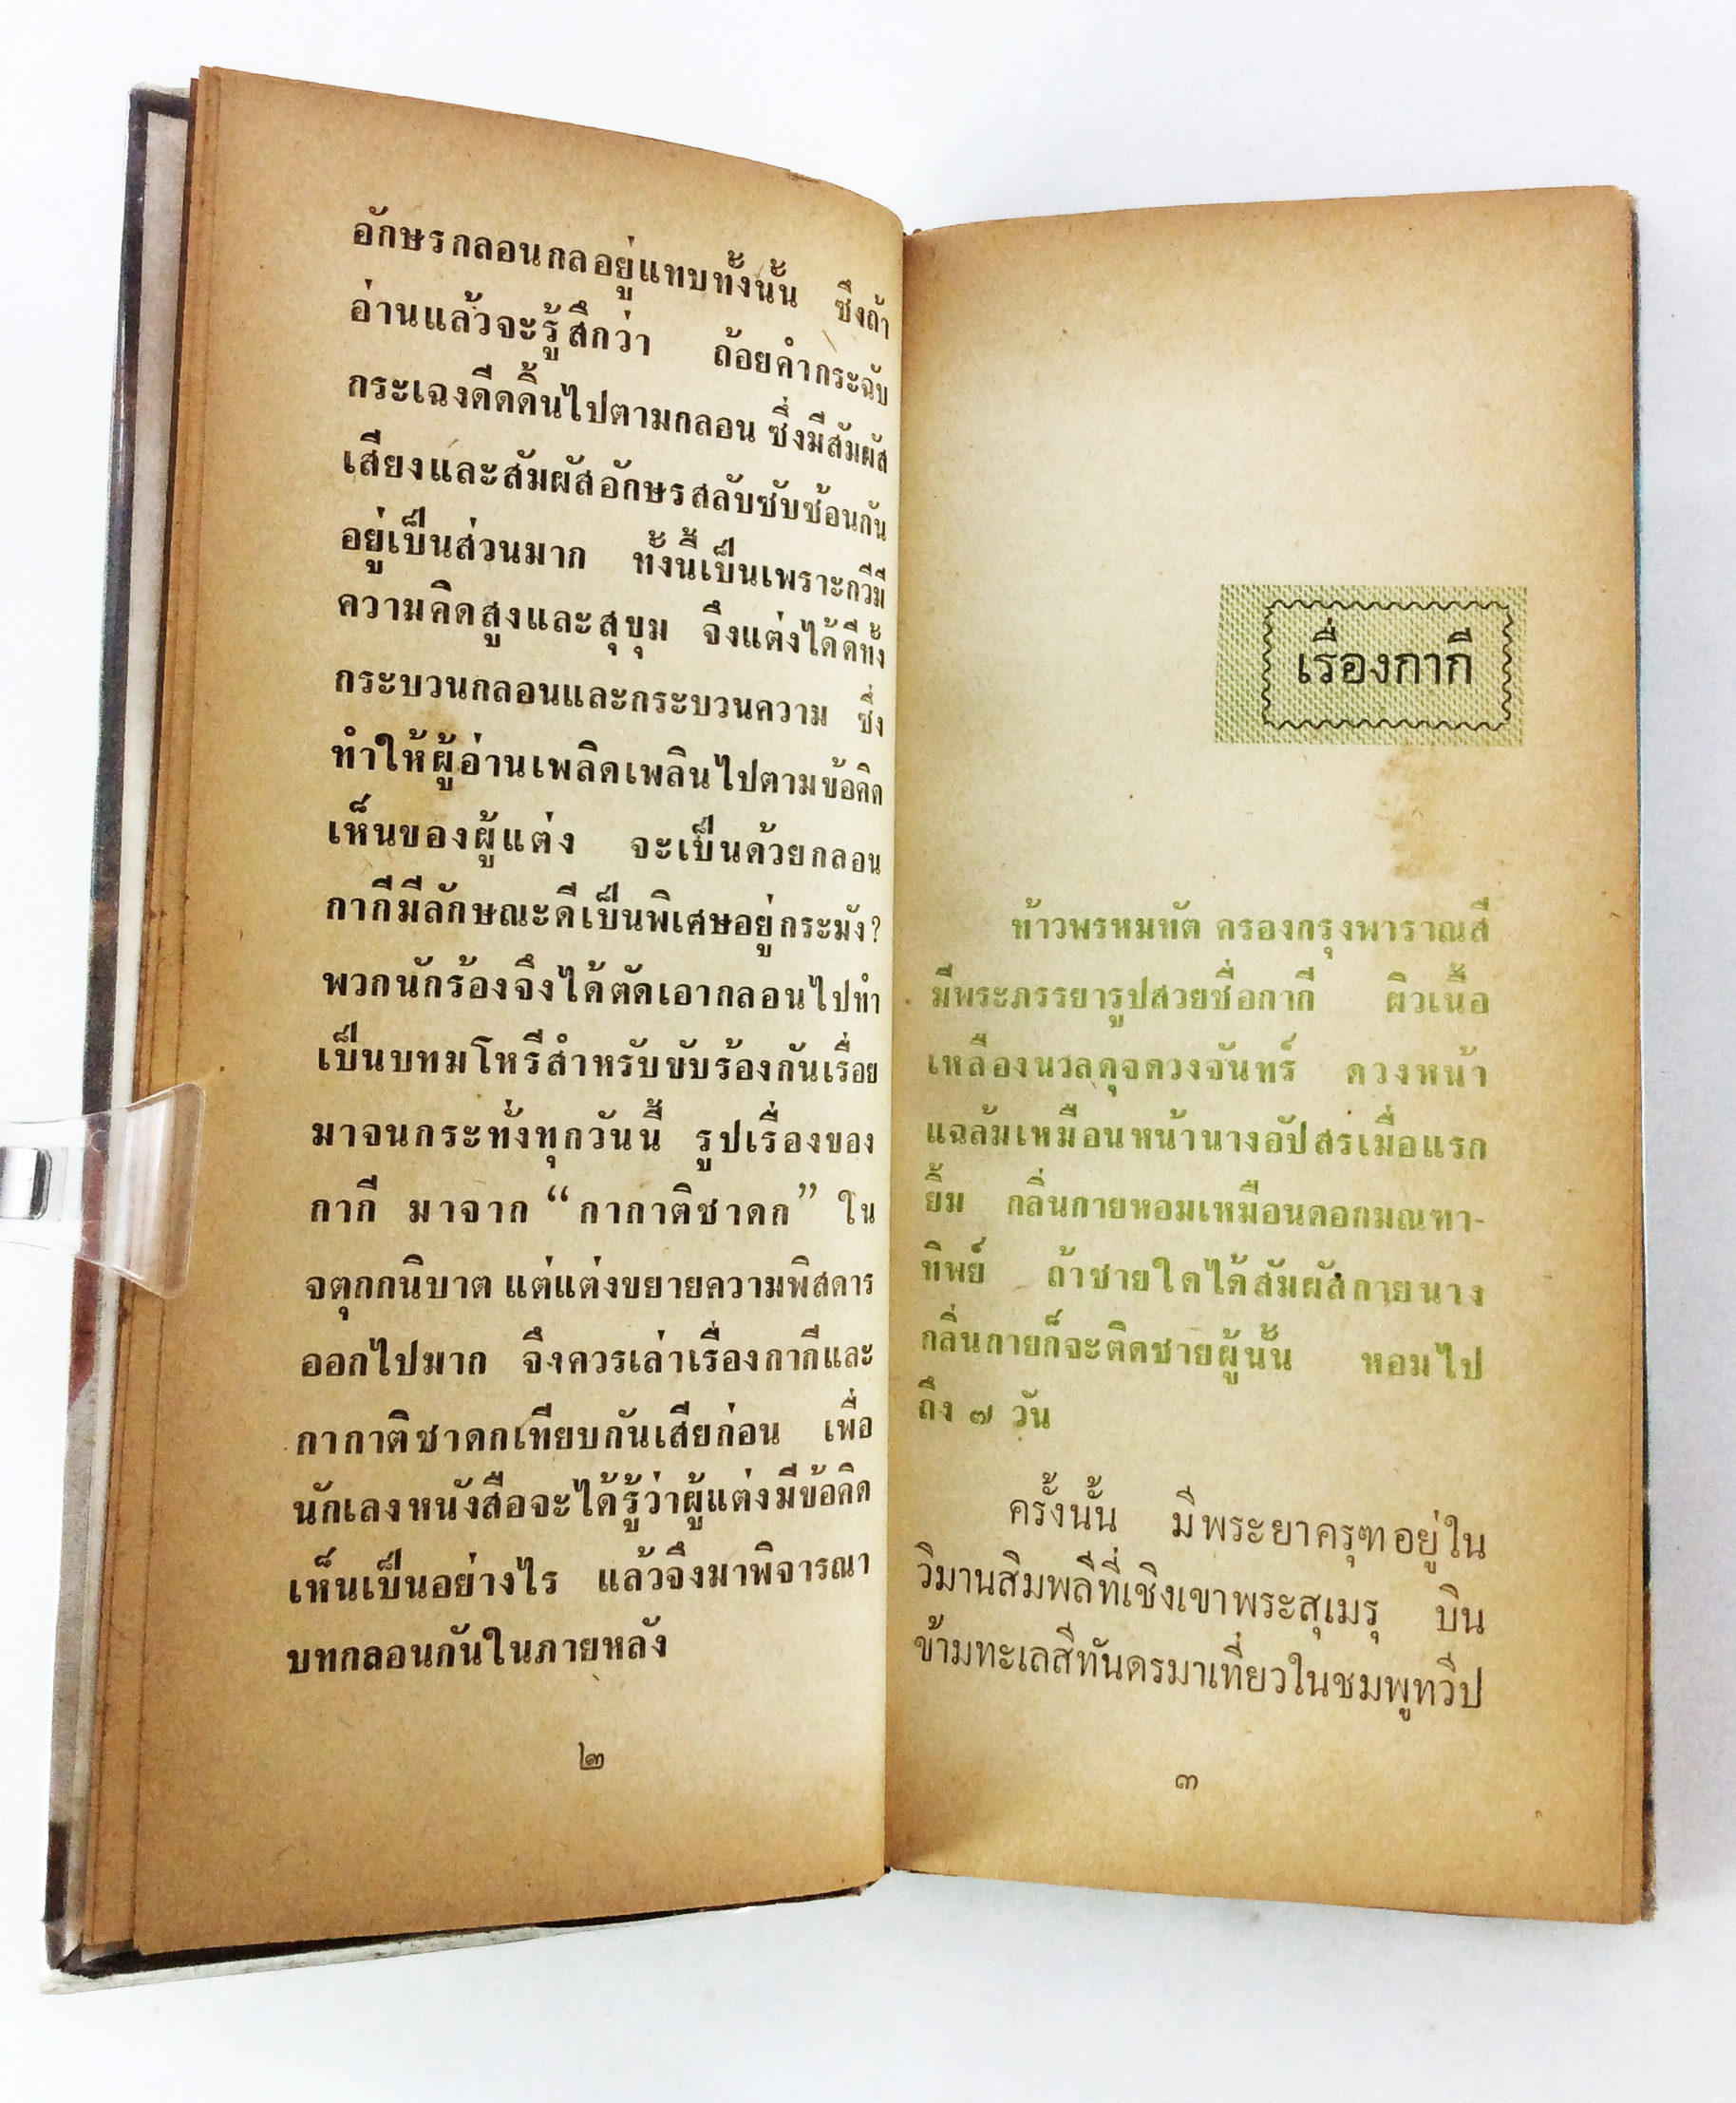 อักษรกลอนกลอยู่แทบทั้งนั้น ซึ่งถ้า
อ่านแล้วจะรู้สึกว่า ถ้อยคำกระฉับ
กระเฉงดีดดิ้นไปตามกลอน ซึ่งมีสัมผัส
เสียงและสัมผัสอักษรสลับซับซ้อนกัน
อยู่เป็นส่วนมาก ทั้งนี้เป็นเพราะกวีมี
ความคิดสูงและสุขุม จึงแต่งได้ดีทั้ง
กระบวนกลอนและกระบวนความ ซึ่ง
ทำให้ผู้อ่านเพลิดเพลินไปตามข้อคิด
เห็นของผู้แต่ง จะเป็นด้วยกลอน
กากีมีลักษณะดีเป็นพิเศษอยู่กระมัง?
พวกนักร้องจึงได้ตัดเอากลอนไปทำ
เป็นบทมโหรีสำหรับขับร้องกันเรื่อย
มาจนกระทั่งทุกวันนี้ รูปเรื่องของ
กากี มาจาก “กากาติชาดก” ใน
จตุกกนิบาต แต่แต่งขยายความพิสดาร
ออกไปมาก จึงควรเล่าเรื่องกากีและ
กากาติชาดกเทียบกันเสียก่อน เพื่อ
นักเลงหนังสือจะได้รู้ว่าผู้แต่งมีข้อคิด
เห็นเป็นอย่างไร แล้วจึงมาพิจารณา
บทกลอนกันในภายหลัง
๒
เรื่องกากี
ท้าวพรหมทัต ครองกรุงพาราณสี
มีพระภรรยารูปสวยชื่อกากี ผิวเนื้อ
เหลืองนวลดุจดวงจันทร์ ดวงหน้า
แฉล้มเหมือนหน้านางอัปสรเมื่อแรก
ยิ้ม กลิ่นกายหอมเหมือนดอกมณฑา-
ทิพย์ ถ้าชายใดได้สัมผัสกายนาง
กลิ่นกายก็จะติดชายผู้นั้น หอมไป
ถึง ๗ วัน
ครั้งนั้น มีพระยาครุฑอยู่ใน
วิมานสิมพลีที่เชิงเขาพระสุเมรุ บิน
ข้ามทะเลสีทันดรมาเที่ยวในชมพูทวีป
๓